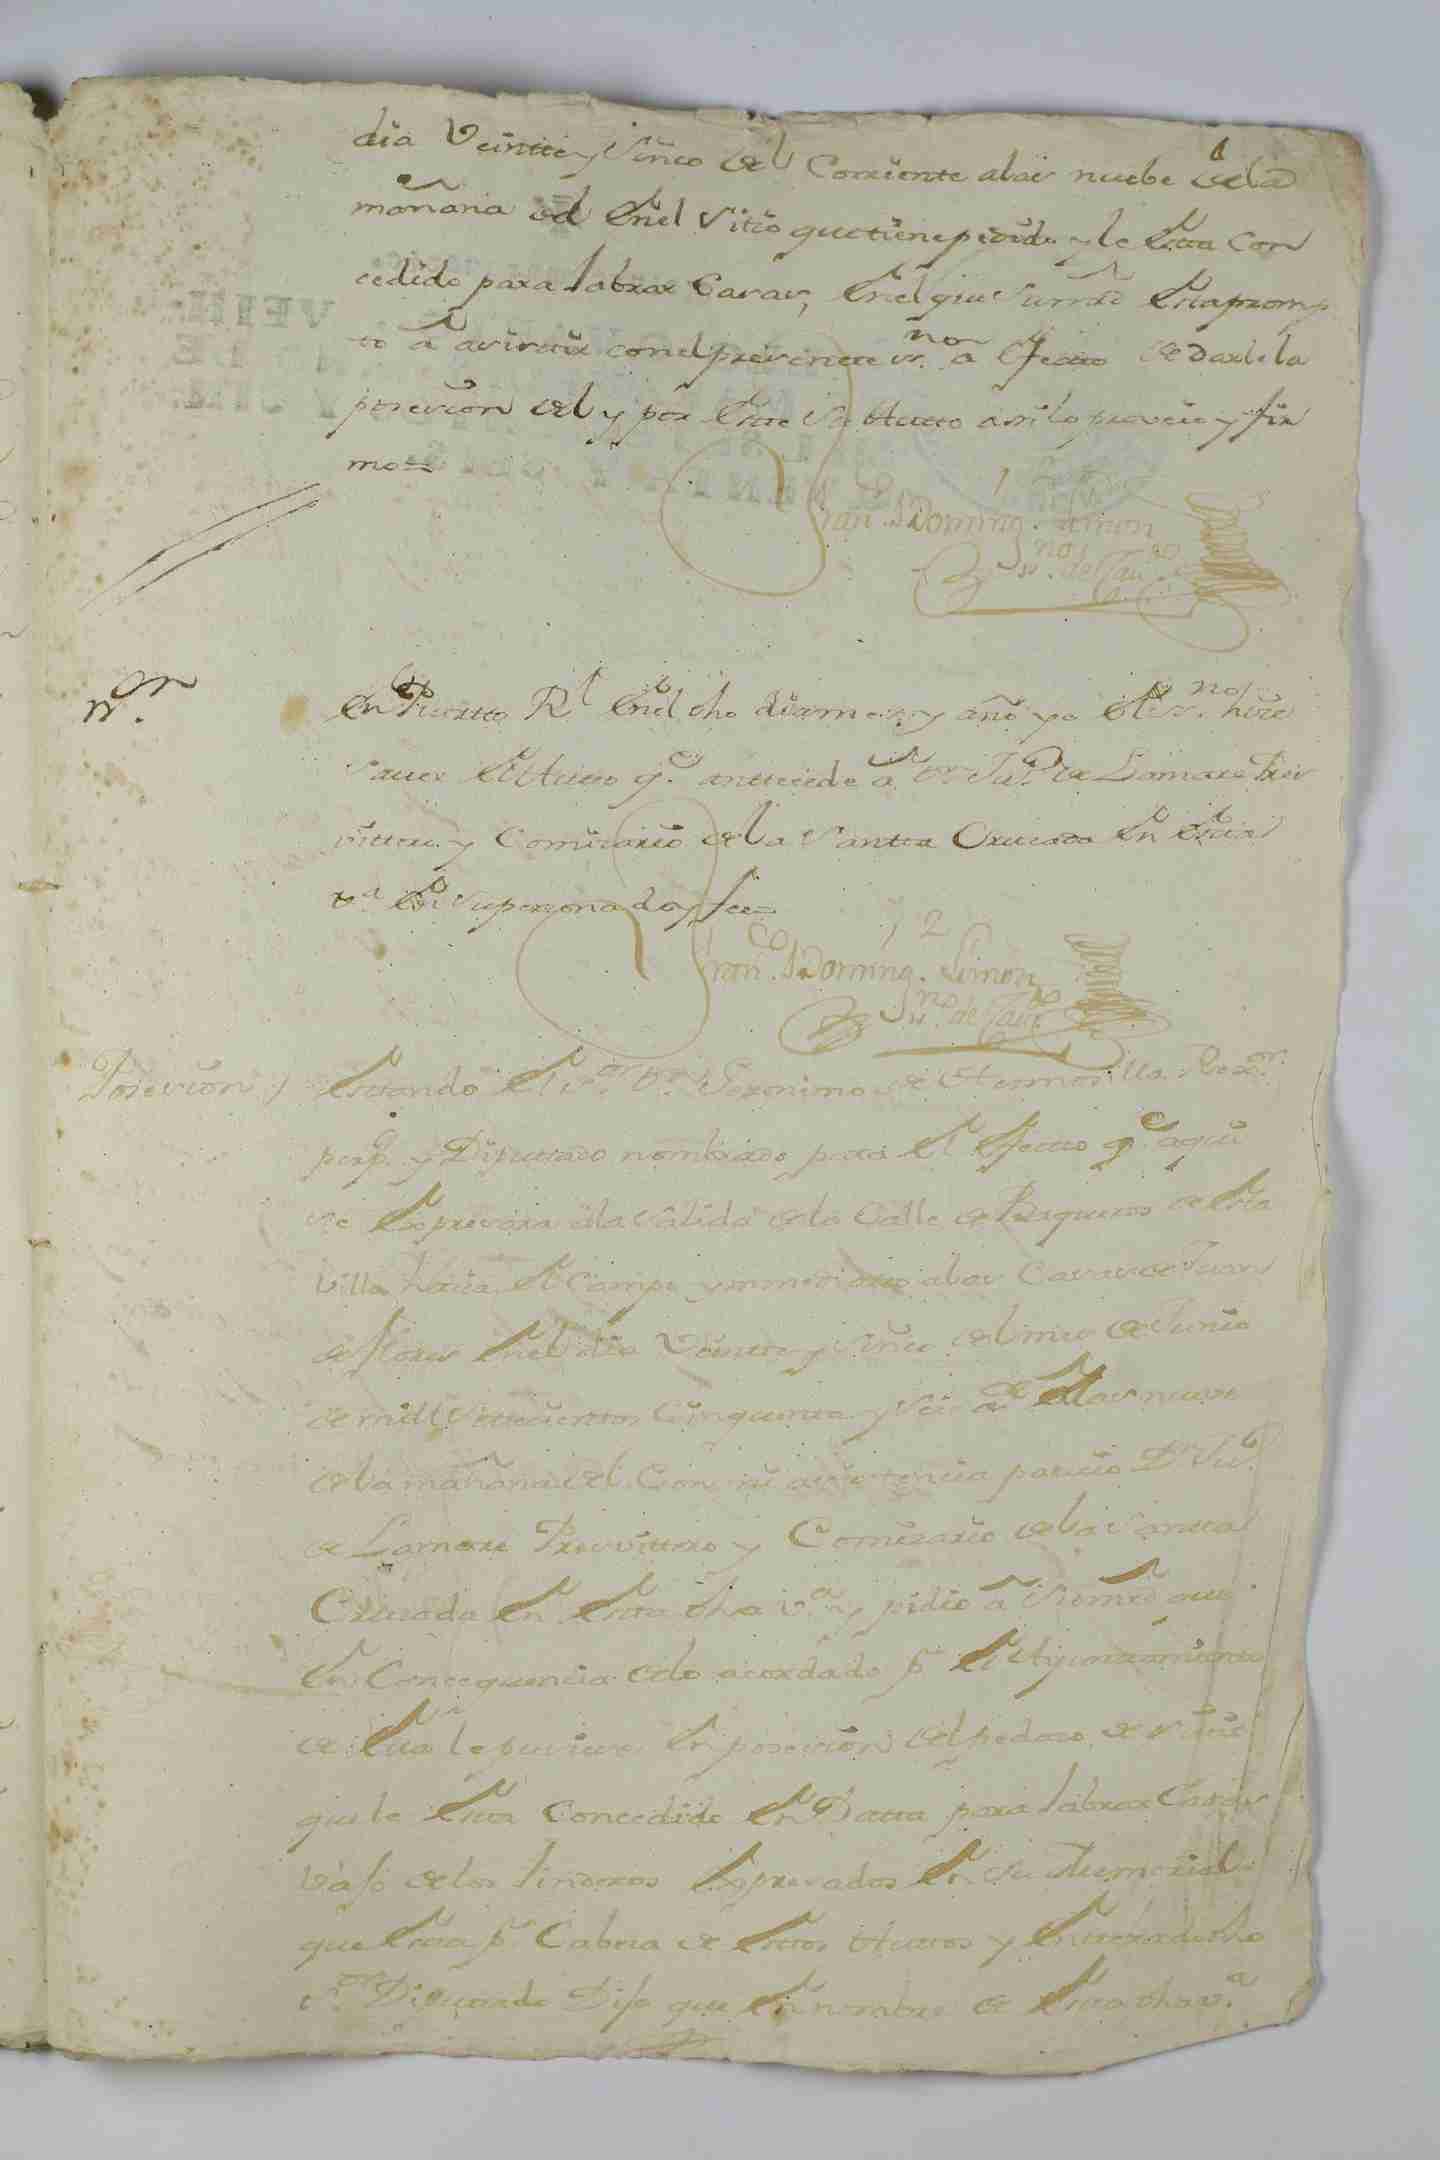 dia Veintte y Sinco del Corriente alas nuebe dela
mañana del Enel Sitio quetiene pedido y le Esta Con
cedido para labrar Casas, Enel que Su mrd Esta promp
to â asistir conel presente ss.no a Efecto de darle la
posesion del y por Este Su Autto asi lo proveio y fir
mo =
Fran.co Doming.o Simon
Ss.no de Cav.do
n.on
En Puertto R.l Enel dho dia mes y año yo El ss.no hise
saver El Autto q.e anttesede â Dn. Ju.o de Lamare Pres
vittero y Comisario dela Santta Cruzada En Esta
v.a En su persona doy fee =
Fran.co Doming.o Simon
Ss.no de Cav.do
Posesion /
Estando El s.or Dn. Geronimo de Hermosilla Rex.or
perp.o y Diputtado nombrado para El Efecto q.e aqui
se Espresara ala salida dela Calle de Baqueros de Esta
Villa hasia El Campo ynmediatto alas Casas de Juan
de flores Enel dia Veintte y Sinco del mes de Junio
de mill Settesienttos Cinquenta y Seis a.s alas nueve
dela mañana del Con mi asistencia paresio Dn. Ju.o
de Lamare Presvittero y Comisario dela Santta
Cruzada En Estta dha v.a y pidio â Su mrd que
En Consequencia delo acordado p.r El Ayuntamiento
de Esta le pusiese En posesion del pedaso de sittio
que le Esta Concedido En Datta para labrar Casas
vajo delos linderos Espresados En Su Memorial
que Esta p.r Cabesa de Estos Auttos y Entterado dho
s.or Diputtado Dijo que En nombre de Estta dha v.a